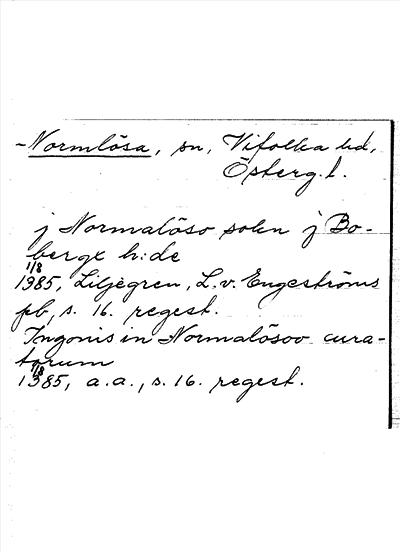 -Normlösa, sn, Vifolka hd,
Österg. l.
j Normalöso sokn j Bo-
bergx h:de
1/8
1385, Liljegren, L. v. Engeströms
pb, s. 16. regest.
Ingonis in Normalösoo cura-
torum
1/8
1385, a.a., s. 16. regest.